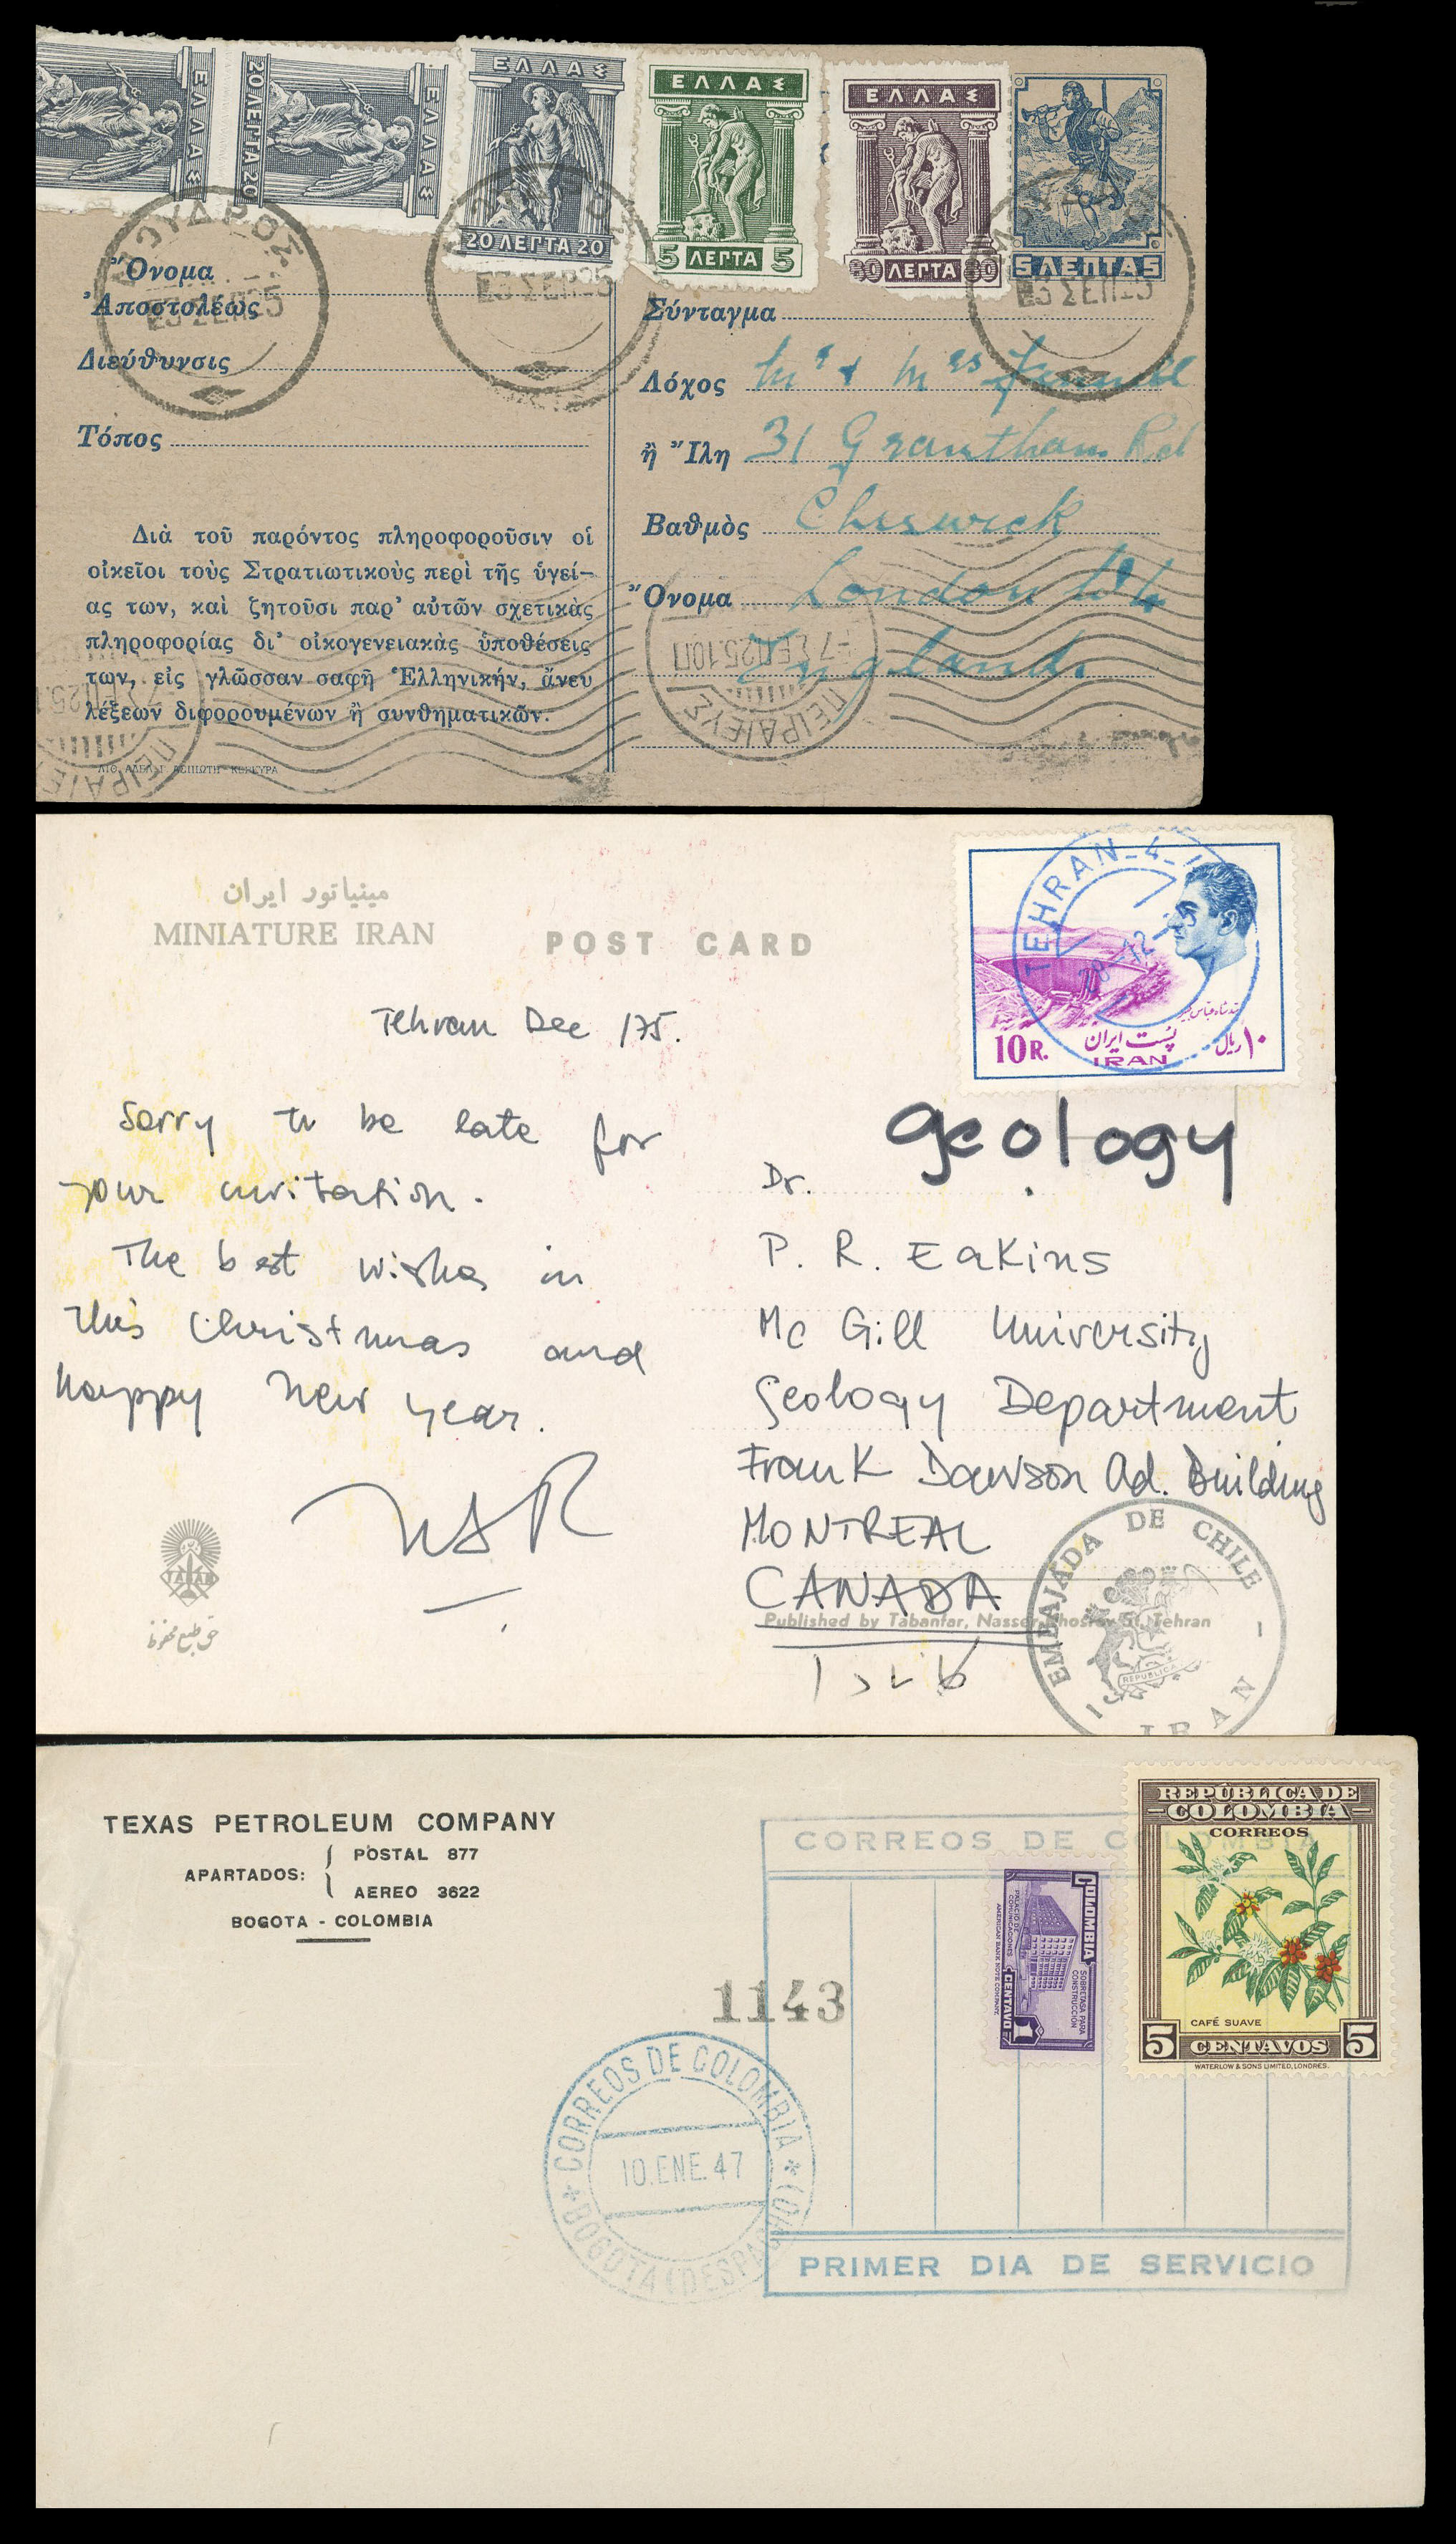 ΕΛΛΑΣ
20 ΛΕΠΤΑ 20
ΕΛΛΑΣ
ΕΛΛΑΣ
20 ΛΕΠΤΑ 20
ΕΛΛΑΣ
5 ΛΕΠΤΑ 5
ΕΛΛΑΣ
80 ΛΕΠΤΑ 80
5 ΛΕΠΤΑ 5
ΜΟΥΔΡΟΣ
3 ΣΕΠ 25
3 ΣΕΠ 25
3 ΣΕΠ 25
Ὄνομα
Ἀποστολέως
Διεύθυνσις
Τόπος
Διὰ τοῦ παρόντος πληροφοροῦσιν οἱ
οἰκεῖοι τοὺς Στρατιωτικοὺς περὶ τῆς ὑγεί-
ας των, καὶ ζητοῦσι παρ' αὐτῶν σχετικὰς
πληροφορίας δι' οἰκογενειακὰς ὑποθέσεις
των, εἰς γλῶσσαν σαφῆ Ἑλληνικήν, ἄνευ
λέξεων διφορουμένων ἢ συνθηματικῶν.
ΛΙΘ. ΑΔΕΛΦ. ΑΣΠΙΩΤΗ-ΚΕΡΚΥΡΑ
Σύνταγμα
Λόχος Mr & Mrs
ἢ Ἴλη 31 Grantham Rd
Βαθμὸς Cheswick
Ὄνομα London W4
England.
7 ΣΕΠ 25.10Π
ΠΕΙΡΑΙΕΥΣ
ΠΕΙΡΑΙΕΥΣ
مینیاتور ایران
MINIATURE IRAN
POST CARD
TEHRAN-4-
10 R.
پست ایران
IRAN
۱۰ ریال
Tehran Dec /75.
Sorry to be late for
your invitation.
The best wishes in
this Christmas and
happy New year.
geology
Dr.
P. R. Eakins
Mc Gill University
Geology Department
Frank Dawson Ad. Building
MONTREAL
CANADA
Published by Tabanfar, Nasser Khosrov St. Tehran
TABAN
حق طبع محفوظ
EMBAJADA DE CHILE
REPUBLICA
IRAN
TEXAS PETROLEUM COMPANY
APARTADOS: POSTAL 877
AEREO 3622
BOGOTA - COLOMBIA
CORREOS DE COLOMBIA
COLOMBIA
SOBRETASA PARA
CONSTRUCCION
PALACIO DE
COMUNICACIONES
1 CENTAVO
AMERICAN BANK NOTE COMPANY.
REPÚBLICA DE
COLOMBIA
CORREOS
CAFÉ SUAVE
5 CENTAVOS 5
WATERLOW & SONS LIMITED, LONDRES.
1143
CORREOS DE COLOMBIA
10.ENE.47
BOGOTA (DESPACHO)
PRIMER DIA DE SERVICIO